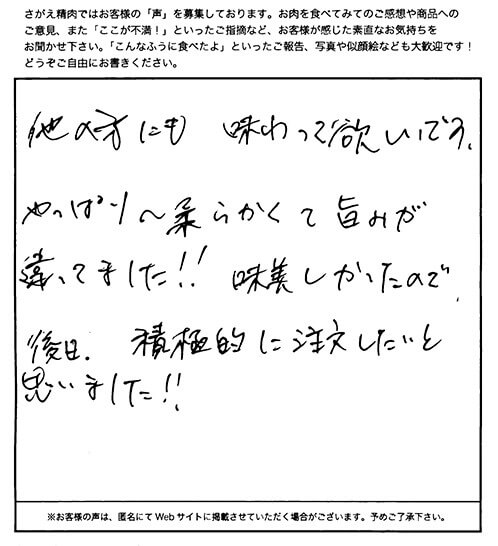 さがえ精肉ではお客様の「声」を募集しております。お肉を食べてみてのご感想や商品への
ご意見、また「ここが不満！」といったご指摘など、お客様が感じた素直なお気持ちを
お聞かせ下さい。「こんなふうに食べたよ」といったご報告、写真や似顔絵なども大歓迎です！
どうぞご自由にお書きください。
他の方にも 味わって欲しいです。
やっぱり〜柔らかくて旨みが
違ってました!! 味美しかったので、
後日、積極的に注文したいと
思いました!!
※お客様の声は、匿名にてWebサイトに掲載させていただく場合がございます。予めご了承下さい。